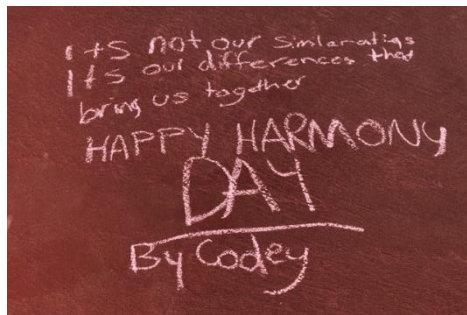 Its not our Simlaraties
Its our differences that
bring us together
HAPPY HARMONY
DAY
By Codey